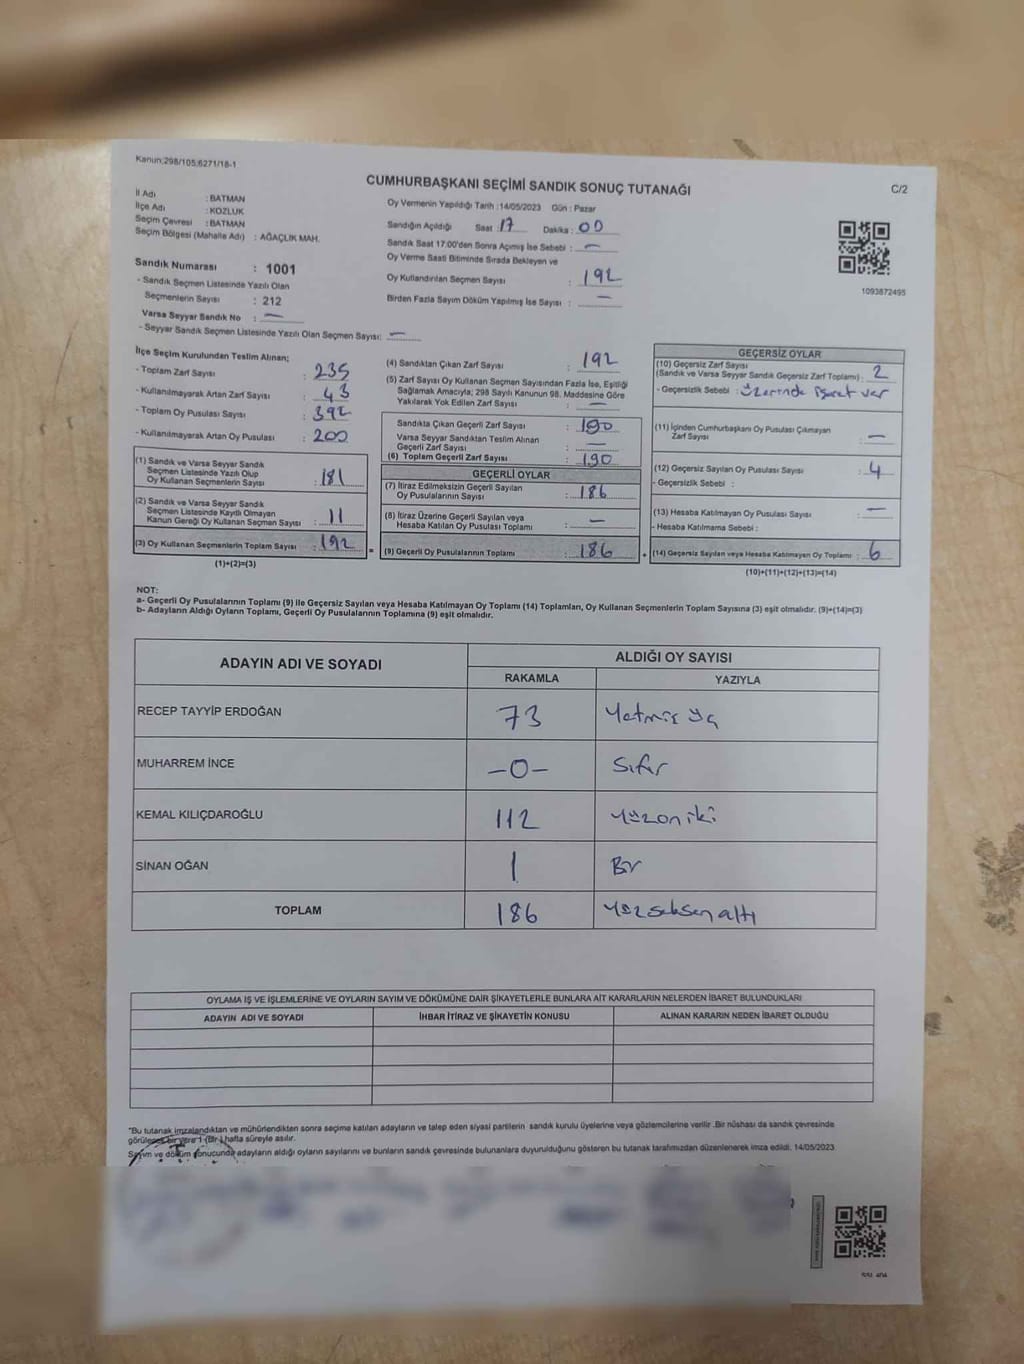 Kanun;298/105;6271/18-1
CUMHURBAŞKANI SEÇİMİ SANDIK SONUÇ TUTANAĞI
C/2
İl Adı : BATMAN
İlçe Adı : KOZLUK
Seçim Çevresi : BATMAN
Seçim Bölgesi (Mahalle Adı) : AĞAÇLIK MAH.
Sandık Numarası : 1001
- Sandık Seçmen Listesinde Yazılı Olan
Seçmenlerin Sayısı : 212
Varsa Seyyar Sandık No : —
- Seyyar Sandık Seçmen Listesinde Yazılı Olan Seçmen Sayısı: —
Oy Vermenin Yapıldığı Tarih :14/05/2023 Gün : Pazar
Sandığın Açıldığı Saat : 17 Dakika : 00
Sandık Saat 17:00'den Sonra Açımış İse Sebebi : —
Oy Verme Saati Bitiminde Sırada Bekleyen ve
Oy Kullandırılan Seçmen Sayısı : 192
Birden Fazla Sayım Döküm Yapılmış İse Sayısı : —
1093872495
İlçe Seçim Kurulundan Teslim Alınan;
- Toplam Zarf Sayısı : 235
- Kullanılmayarak Artan Zarf Sayısı : 43
- Toplam Oy Pusulası Sayısı : 392
- Kullanılmayarak Artan Oy Pusulası : 200
(1) Sandık ve Varsa Seyyar Sandık
Seçmen Listesinde Yazılı Olup
Oy Kullanan Seçmenlerin Sayısı : 181
(2) Sandık ve Varsa Seyyar Sandık
Seçmen Listesinde Kayıtlı Olmayan
Kanun Gereği Oy Kullanan Seçmen Sayısı : 11
(3) Oy Kullanan Seçmenlerin Toplam Sayısı : 192
(1)+(2)=(3)
(4) Sandıktan Çıkan Zarf Sayısı : 192
(5) Zarf Sayısı Oy Kullanan Seçmen Sayısından Fazla İse, Eşitliği
Sağlamak Amacıyla; 298 Sayılı Kanunun 98. Maddesine Göre
Yakılarak Yok Edilen Zarf Sayısı : —
Sandıkta Çıkan Geçerli Zarf Sayısı : 190
Varsa Seyyar Sandıktan Teslim Alınan
Geçerli Zarf Sayısı : —
(6) Toplam Geçerli Zarf Sayısı : 190
GEÇERLİ OYLAR
(7) İtiraz Edilmeksizin Geçerli Sayılan
Oy Pusulalarının Sayısı : 186
(8) İtiraz Üzerine Geçerli Sayılan veya
Hesaba Katılan Oy Pusulası Toplamı : —
= (9) Geçerli Oy Pusulalarının Toplamı : 186
GEÇERSİZ OYLAR
(10) Geçersiz Zarf Sayısı
(Sandık ve Varsa Seyyar Sandık Geçersiz Zarf Toplamı) : 2
- Geçersizlik Sebebi : üzerinde işaret var
(11) İçinden Cumhurbaşkanı Oy Pusulası Çıkmayan
Zarf Sayısı : —
(12) Geçersiz Sayılan Oy Pusulası Sayısı : 4
- Geçersizlik Sebebi :
(13) Hesaba Katılmayan Oy Pusulası Sayısı : —
- Hesaba Katılmama Sebebi :
+ (14) Geçersiz Sayılan veya Hesaba Katılmayan Oy Toplamı : 6
(10)+(11)+(12)+(13)=(14)
NOT:
a- Geçerli Oy Pusulalarının Toplamı (9) ile Geçersiz Sayılan veya Hesaba Katılmayan Oy Toplamı (14) Toplamları, Oy Kullanan Seçmenlerin Toplam Sayısına (3) eşit olmalıdır. (9)+(14)=(3)
b- Adayların Aldığı Oyların Toplamı, Geçerli Oy Pusulalarının Toplamına (9) eşit olmalıdır.
ADAYIN ADI VE SOYADI
ALDIĞI OY SAYISI
RAKAMLA YAZIYLA
RECEP TAYYİP ERDOĞAN 73 Yetmiş üç
MUHARREM İNCE -0- Sıfır
KEMAL KILIÇDAROĞLU 112 Yüzoniki
SİNAN OĞAN 1 Bir
TOPLAM 186 Yüzseksenaltı
OYLAMA İŞ VE İŞLEMLERİNE VE OYLARIN SAYIM VE DÖKÜMÜNE DAİR ŞİKAYETLERLE BUNLARA AİT KARARLARIN NELERDEN İBARET BULUNDUKLARI
ADAYIN ADI VE SOYADI İHBAR İTİRAZ VE ŞİKAYETİN KONUSU ALINAN KARARIN NEDEN İBARET OLDUĞU
"Bu tutanak imzalandıktan ve mühürlendikten sonra seçime katılan adayların ve talep eden siyasi partilerin sandık kurulu üyelerine veya gözlemcilerine verilir .Bir nüshası da sandık çevresinde
görülecek bir yere 1 (Bir ) hafta süreyle asılır.
Sayım ve döküm sonucunda adayların aldığı oyların sayılarını ve bunların sandık çevresinde bulunanlara duyurulduğunu gösteren bu tutanak tarafımızdan düzenlenerek imza edildi. 14/05/2023